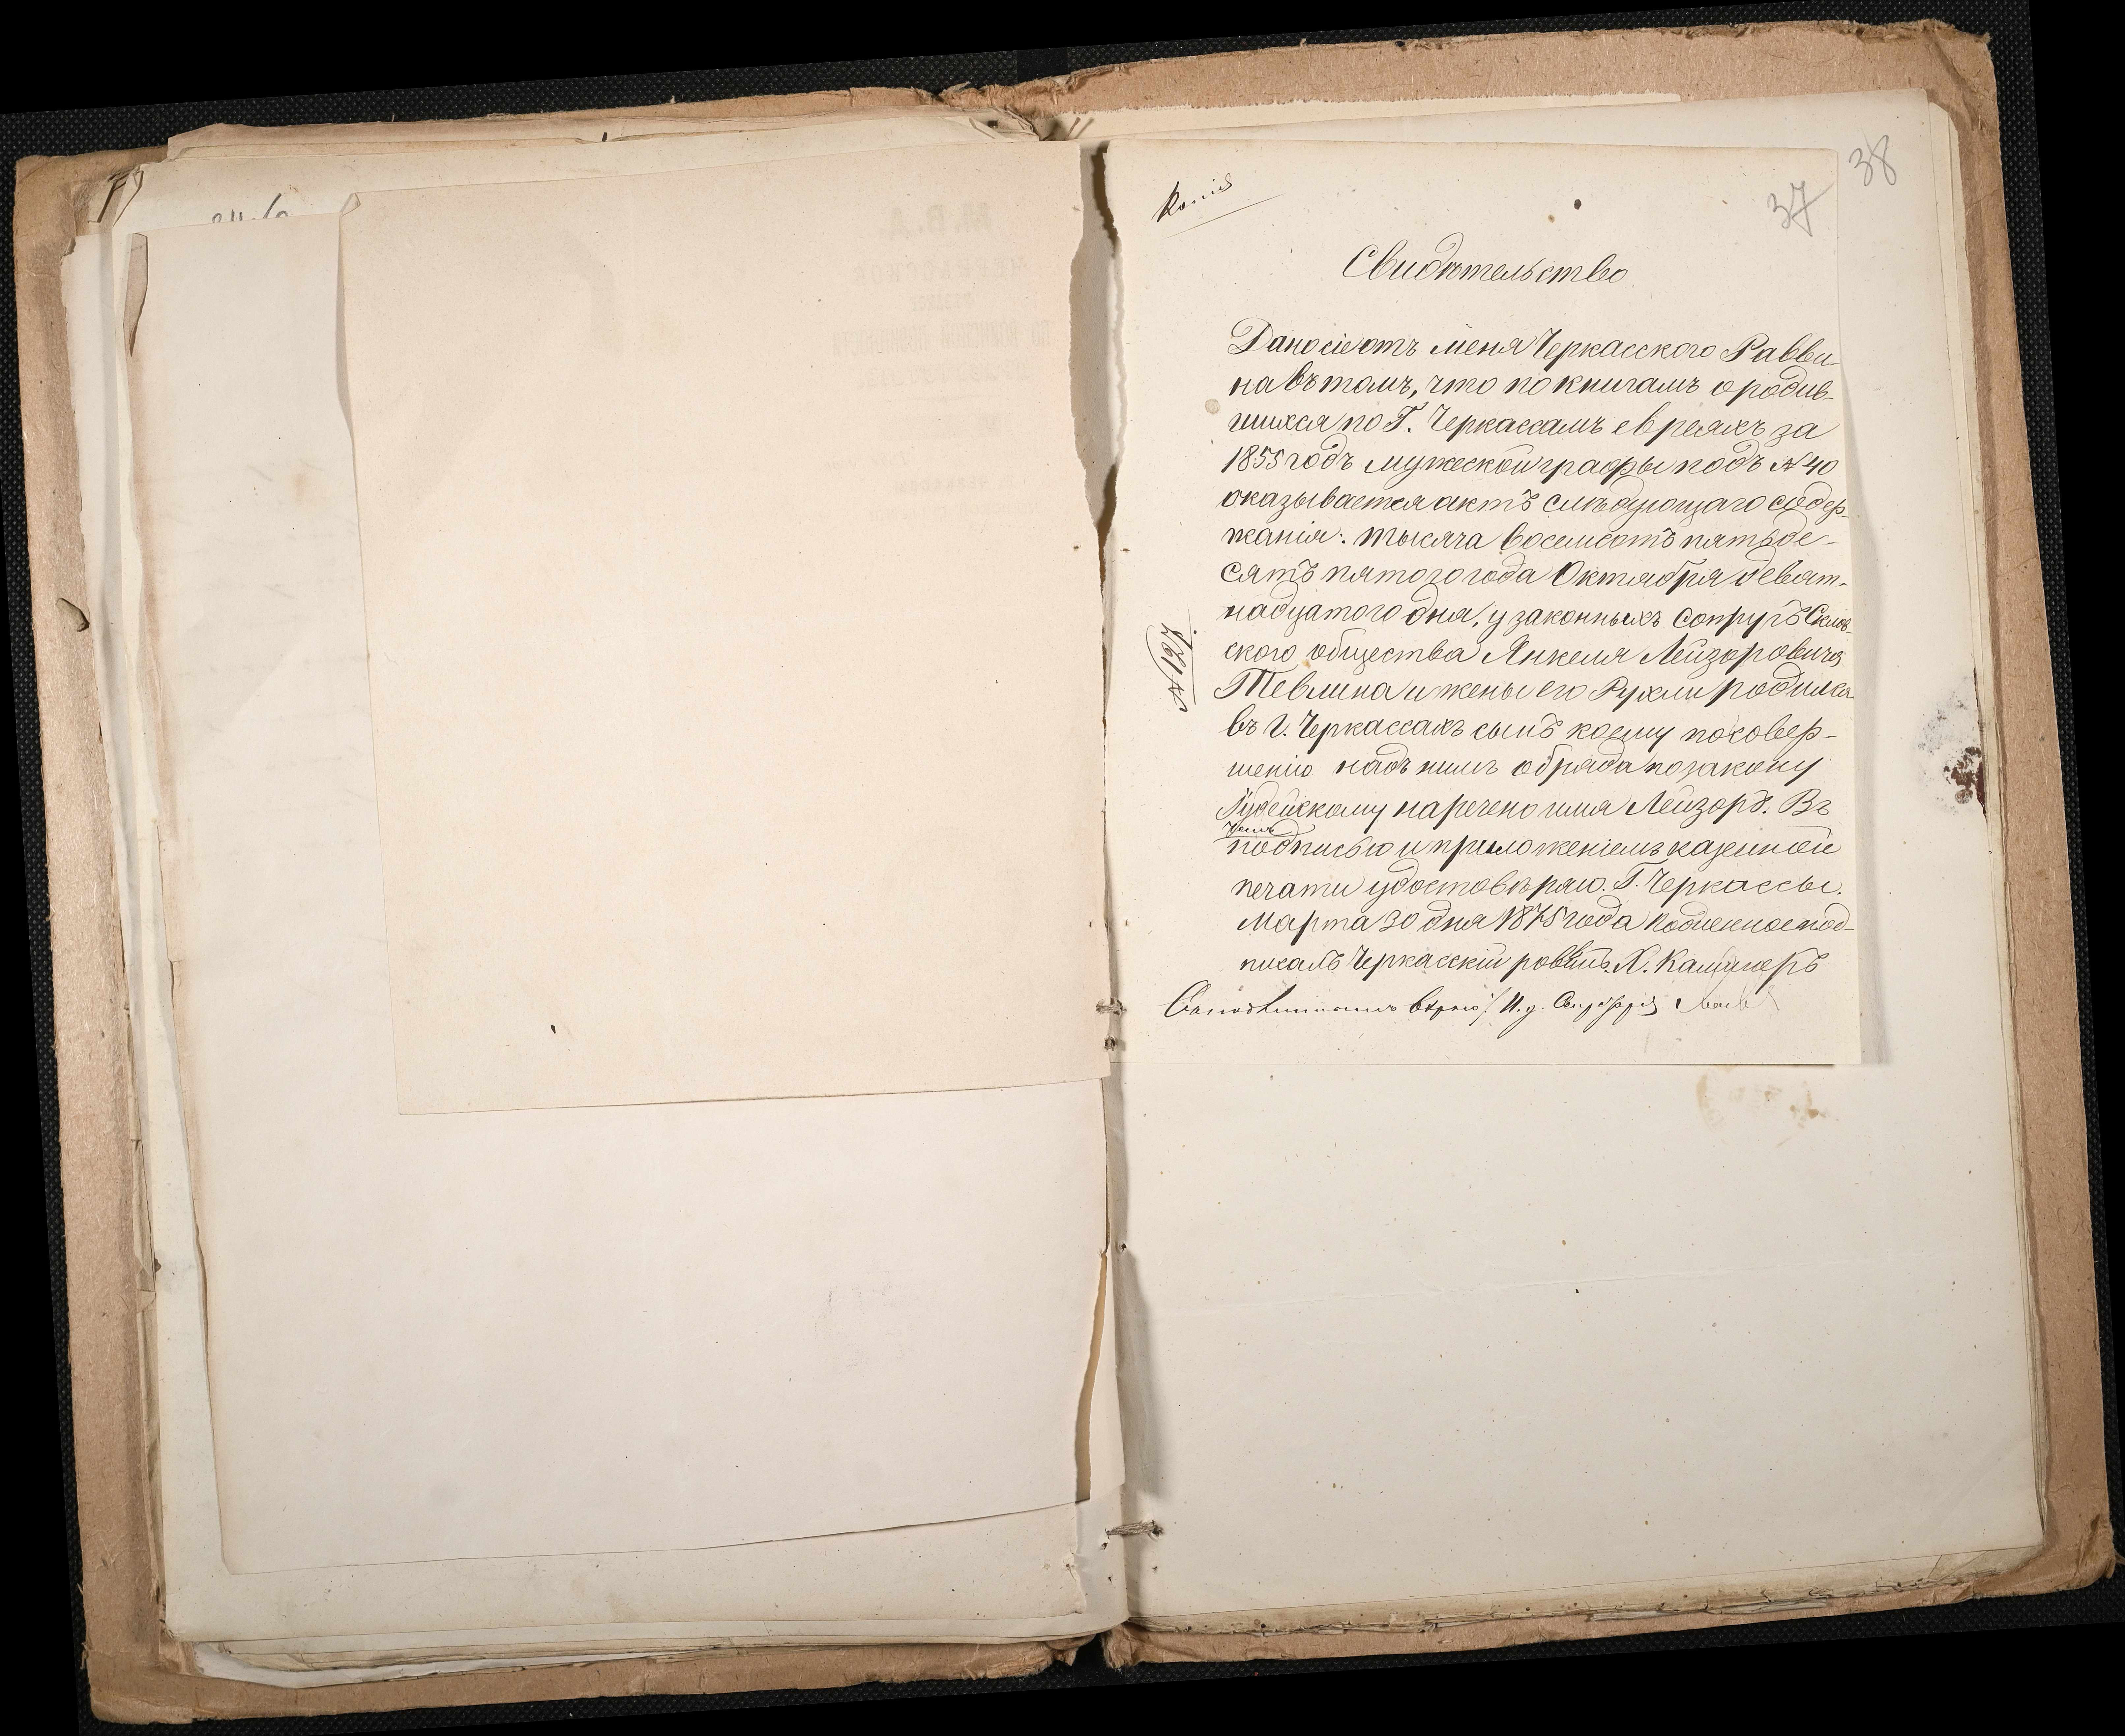 Копія
38
37
Свидѣтельство
Дано сіе отъ меня Черкасского Равви-
на въ томъ, что по книгамъ о родив-
шихся по Г. Черкассамъ евреяхъ за
1855 годъ мужеской графы подъ № 40
оказывается актъ слѣдующаго содер-
жанія: тысяча восемсотъ пятьде-
сятъ пятого года Октября девят-
надцатого дня, у законныхъ супругъ
ского общества Янкеля Лейзоровича
Тевлина и жены его Рухли родился
въ г. Черкассахъ сынъ коему по совер-
шенію надъ нимъ обряда по закону
Іудейскому наречено имя Лейзоръ. Въ
чемъ
подписью и приложеніемъ казенной
печати удостовѣряю. Г. Черкассы.
Марта 30 дня 1875 года подленное под-
писалъ Черкасскій раввинъ Х.
Съ подлиннымъ вѣрно: И. д. Секретаря